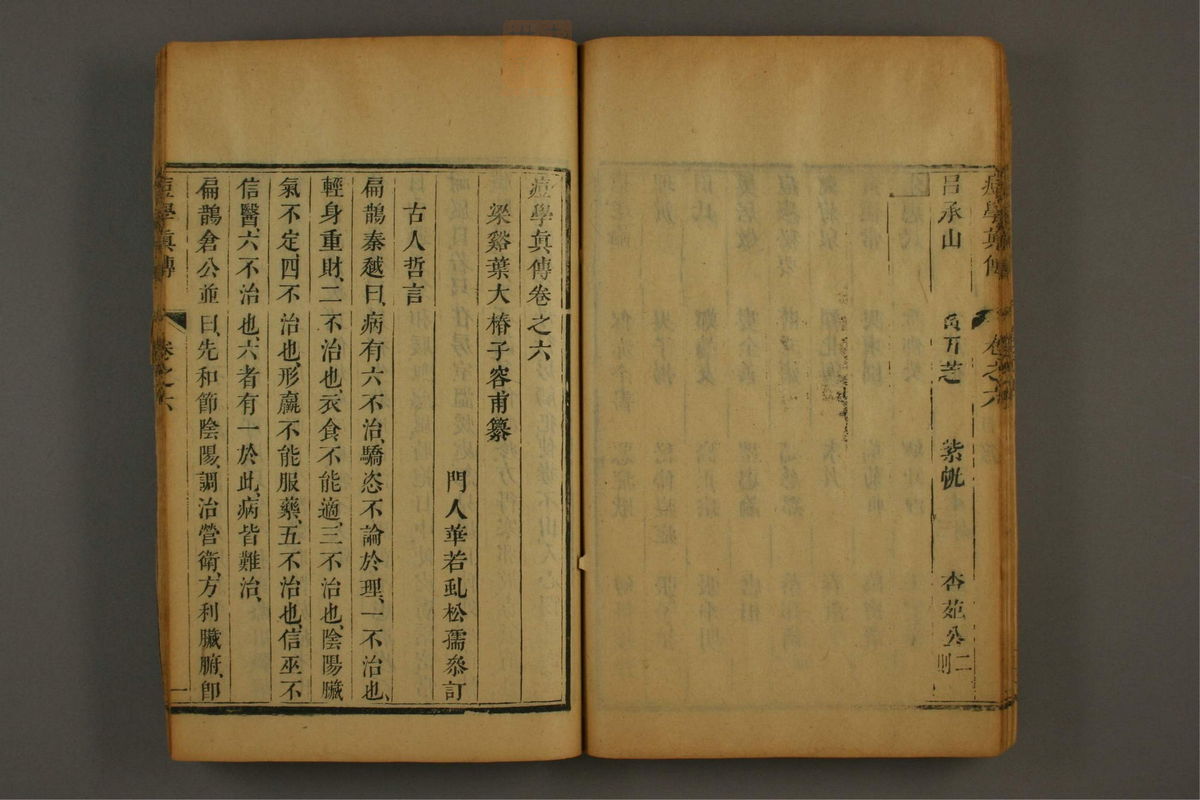 呂承山　萬万芝　紫帨　杏苑公二則
痘學眞傳　卷之六
痘學眞傳卷之六
梁谿葉大椿子容甫纂
門人華若虬松孺叅訂
古人哲言
扁鵲秦越曰、病有六不治、驕恣不論於理、一不治也、
輕身重財、二不治也、衣食不能適、三不治也、陰陽臟
氣不定、四不治也、形羸不能服藥、五不治也、信巫不
信醫、六不治也、六者有一於此、病皆難治、
扁鵲倉公並曰、先和節陰陽、調治營衛、方利臟腑、卽
痘學眞傳　卷之六　一